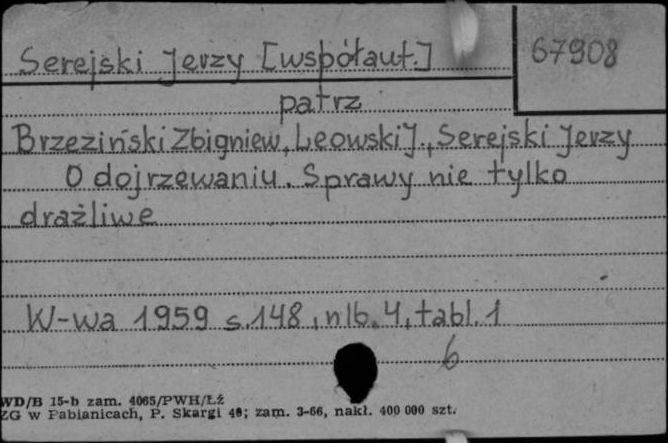 Serejski Jerzy [współaut.]
67908
patrz
Brzeziński Zbigniew, Leowski J., Serejski Jerzy
O dojrzewaniu. Sprawy nie tylko
drażliwe
W-wa 1959 s.148, nlb. 4, tabl. 1
6
WD/B 15-b zam. 4065/PWH/Łż
ZG w Pabianicach, P. Skargi 40; zam. 3-66, nakł. 400 000 szt.